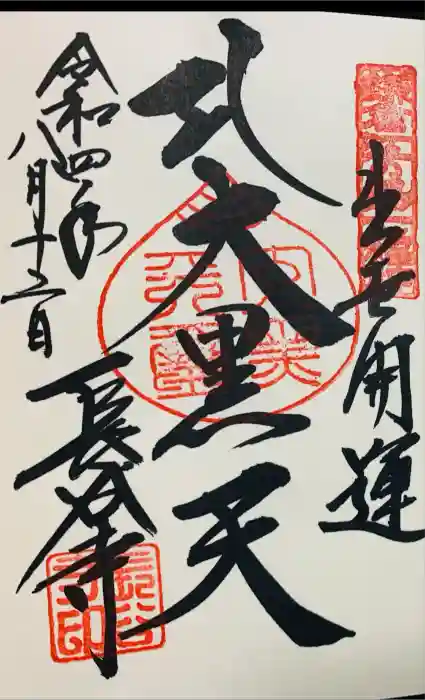 出世開運
大黒天
令和四年
八月十二日
長谷寺
長谷寺印